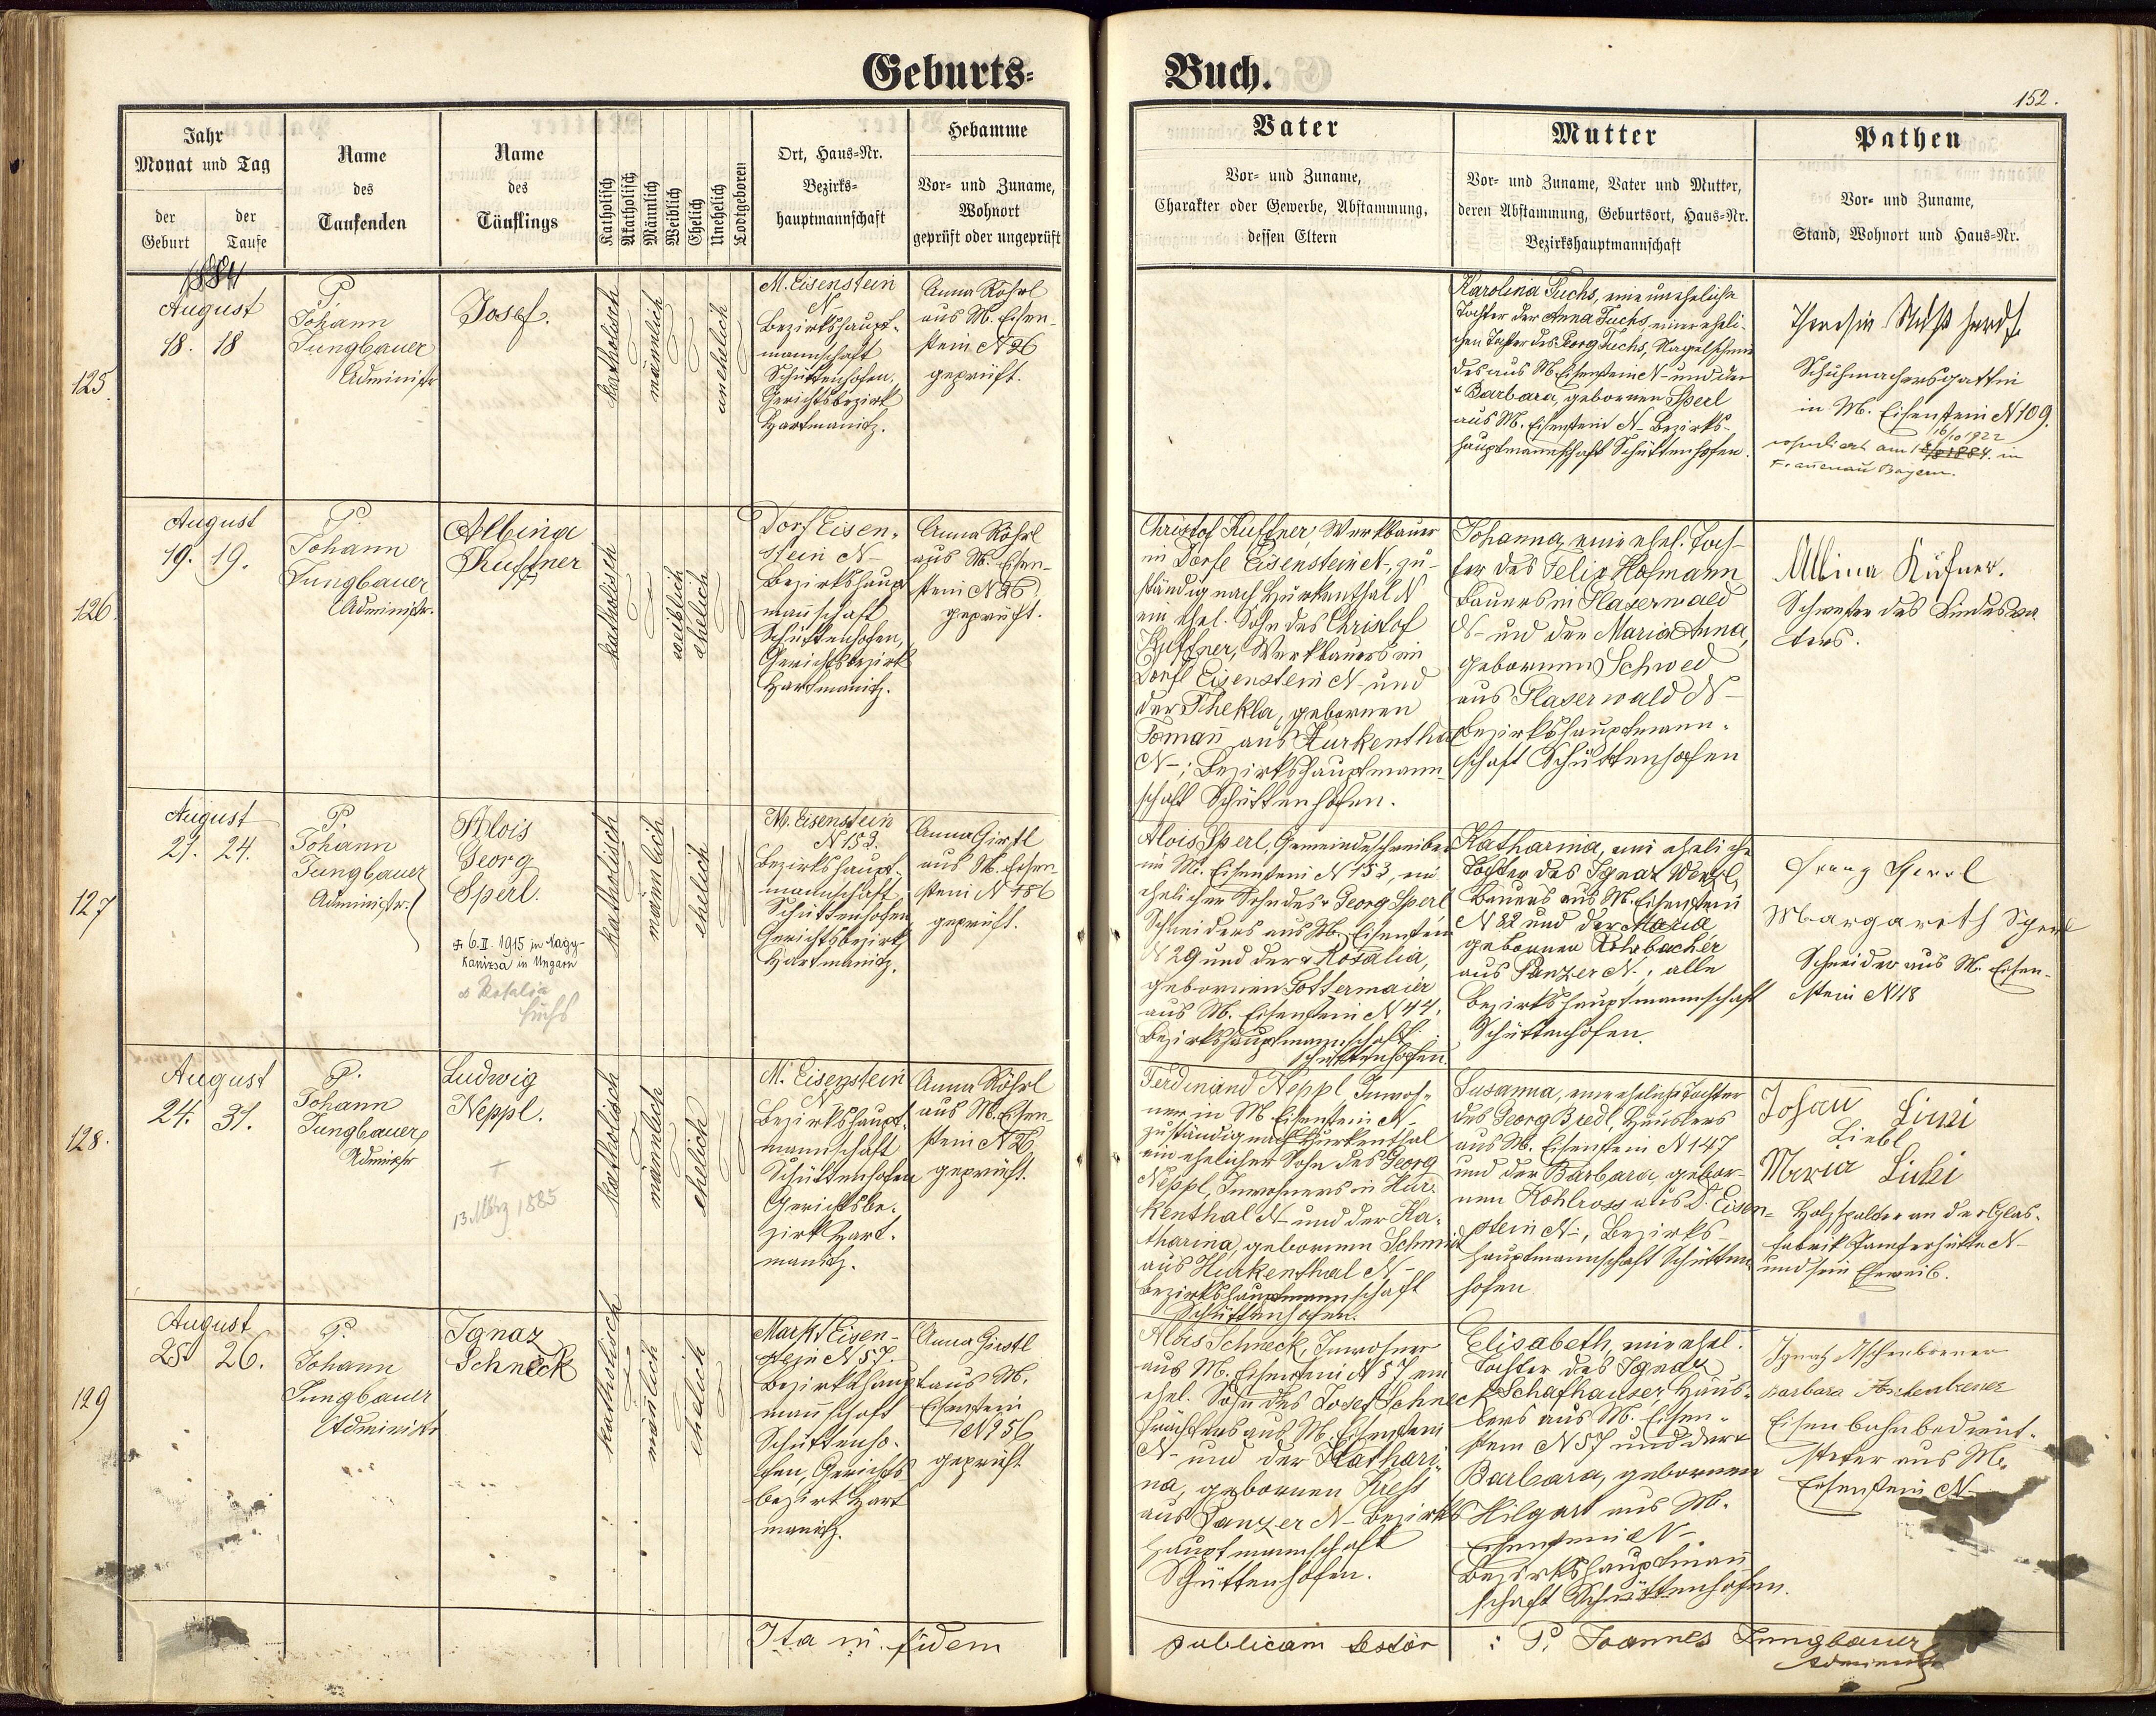 Geburts-
Buch.
152.
Jahr
Monat und Tag
der Geburt
der Taufe
Name
des
Taufenden
Name
des
Täuflings
Katholisch
Akatholisch
Männlich
Weiblich
Ehelich
Unehelich
Todtgeboren
Ort, Haus-Nr.
Bezirks-
hauptmannschaft
Hebamme
Vor- und Zuname,
Wohnort
geprüft oder ungeprüft
Vater
Vor- und Zuname,
Charakter oder Gewerbe, Abstammung,
dessen Eltern
Mutter
Vor- und Zuname, Vater und Mutter,
deren Abstammung, Geburtsort, Haus-Nr.
Bezirkshauptmannschaft
Pathen
Vor- und Zuname,
Stand, Wohnort und Haus-Nr.
1884
125.
August
18. 18
P.
Johann
Jungbauer
Administr
Josef.
katholisch
männlich
unehelich
M. Eisenstein
N
Bezirkshaupt-
mannschaft
Schüttenhofen,
Gerichtsbezirk
Hartmanitz.
Anna Röhrl
aus M. Eisen-
stein N 26
geprüft.
Karolina Fuchs, eine uneheliche
Tochter der Anna Fuchs, einer eheli-
chen Tochter des Georg Fuchs, Nagelschmi
des aus M. Eisenstein N- und der
+ Barbara, gebornen Sperl
aus M. Eisenstein N- Bezirks-
hauptmannschaft Schüttenhofen.
Schuhmachersgattin
in M. Eisenstein N 109.
16/10 1922
am
in
Frauenau Bayern.
126.
August
19. 19.
P.
Johann
Jungbauer
Administr.
Albina
Kuffner
katholisch
weiblich
ehelich
Dorf Eisen-
stein N-
Bezirkshaupt
mannschaft
Schüttenhofen,
Gerichtsbezirk
Hartmanitz.
Anna Röhrl
aus M. Eisen-
stein N 26
geprüft.
Christof Kuffner, Werkbauer
in Dorfe Eisenstein N-, zu-
ständig nach Hurkenthal N
ein ehel. Sohn des Christof
Kuffner, Werkbauers in
Dorfe Eisenstein N- und
der Thekla, gebornen
Tomañ aus Hurkenthal
N-; Bezirkshauptmann-
schaft Schüttenhofen.
Johanna, eine ehel. Toch-
ter des Felix Hofmann
Bauers in Glaserwald
N- und der Maria Anna,
gebornen Schwed
aus Glaserwald N-
Bezirkshauptmann-
schaft Schüttenhofen
Albina Küfner.
Schwester des Kindesva
ters.
127
August
21. 24.
P.
Johann
Jungbauer
Administr.
Alois
Georg
Sperl.
+ 6.II.1915 in Nagy-
Kanizsa in Ungarn
∞ Rosalia
Fuchs
katholisch
männlich
ehelich
M. Eisenstein
N 153.
Bezirkshaupt-
mannschaft
Schüttenhofen
Gerichtsbezirk
Hartmanitz.
Anna Girstl
aus M. Eisen-
stein N
geprüft.
Alois Sperl, Gemeindeschreiber
in M. Eisenstein N 153, ein
ehelicher Sohn des + Georg Sperl
Schneiders aus M. Eisenstein
N 29 und der + Rosalia,
gebornen Lottermaier
aus M. Eisenstein N 44,
Bezirkshauptmannschaft
Schüttenhofen.
Katharina, eine eheliche
Tochter des Ignaz Weizl,
Bauers aus M. Eisenstein
N 82 und der Maria
gebornen Rohrbacher
aus Panzer N-; alle
Bezirkshauptmannschaft
Schüttenhofen.
Franz Sperl
Margareth Sperl
Schneider aus M. Eisen-
stein N 18
128.
August
24. 31.
P.
Johann
Jungbauer
Administr
Ludwig
Neppl.
+
13. März 1885
katholisch
männlich
ehelich
M. Eisenstein
N
Bezirkshaupt-
mannschaft
Schüttenhofen
Gerichtsbe-
zirk Hart-
manitz.
Anna Röhrl
aus M. Eisen-
stein N 26
geprüft.
Ferdinand Neppl, Inwoh-
ner in M. Eisenstein N-
zuständig nach Hurkenthal
ein ehelicher Sohn des Georg
Neppl, Inwohners in Hur-
kenthal N- und der Ka-
tharina, gebornen Schmid
aus Hurkenthal N-
Bezirkshauptmannschaft
Schüttenhofen.
Susanna, eine eheliche Tochter
des Georg Bredl, Häuslers
aus M. Eisenstein N 147
und der Barbara, gebor-
nen Kohlross aus D. Eisen-
stein N-, Bezirks-
hauptmannschaft Schütten
hofen
Johañ
Liebl
Maria
Holzspalter an der Glas-
fabrik N-
und sein Eheweib.
129
August
25. 26.
P.
Johann
Jungbauer
Administr
Ignaz
Schneck
katholisch
mäñlich
ehelich
Markt Eisen-
stein N 57.
Bezirkshaupt
mañschaft
Schüttenho-
fen, Gerichts
bezirk Hart
manitz.
Anna Girstl
aus M.
Eisenstein
N 256
geprüft
Alois Schneck, Inwohner
aus M. Eisenstein N 57, ein
ehel. Sohn des Josef Schneck
aus M. Eisenstein
N- und der Kathari-
na, gebornen Kress
aus Panzer N- Bezirks
hauptmannschaft
Schüttenhofen.
Elisabeth, eine ehel.
Tochter des Ignaz
Schafhauser Häus-
lers aus M. Eisen-
stein N 57 und der +
Barbara, gebornen
Hilgart aus M.
Eisenstein N-
Bezirkshauptmañ
schaft Schüttenhofen.
Ignatz Aschenbrener
Barbara Aschenbrener
Eisenbahnbedienst-
steter aus M.
Eisenstein N-
Ita in fidem publicam testor : P. Joannes Jungbauer
Administr